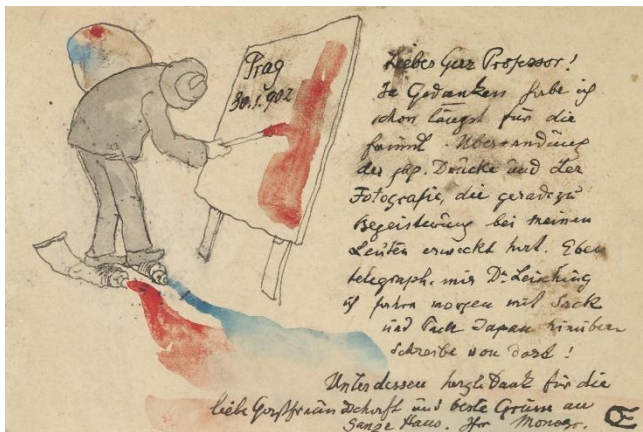 Prag
30.1.902
Lieber Herr Professor!
In Gedanken habe ich
schon längst für die
freundl. Übersendung
der jap. Drucke und der
Fotografie, die geradezu
Begeisterung bei meinen
Leuten erweckt hat. Eben
telegraph. mir Dr. Leisching
ich fahre morgen mit Sack
und Pack Japan hinüber
schreibe von dort!
Unterdessen herzl. Dank für die
liebe Gastfreundschaft und beste Grüsse an
ganze Haus. Ihr